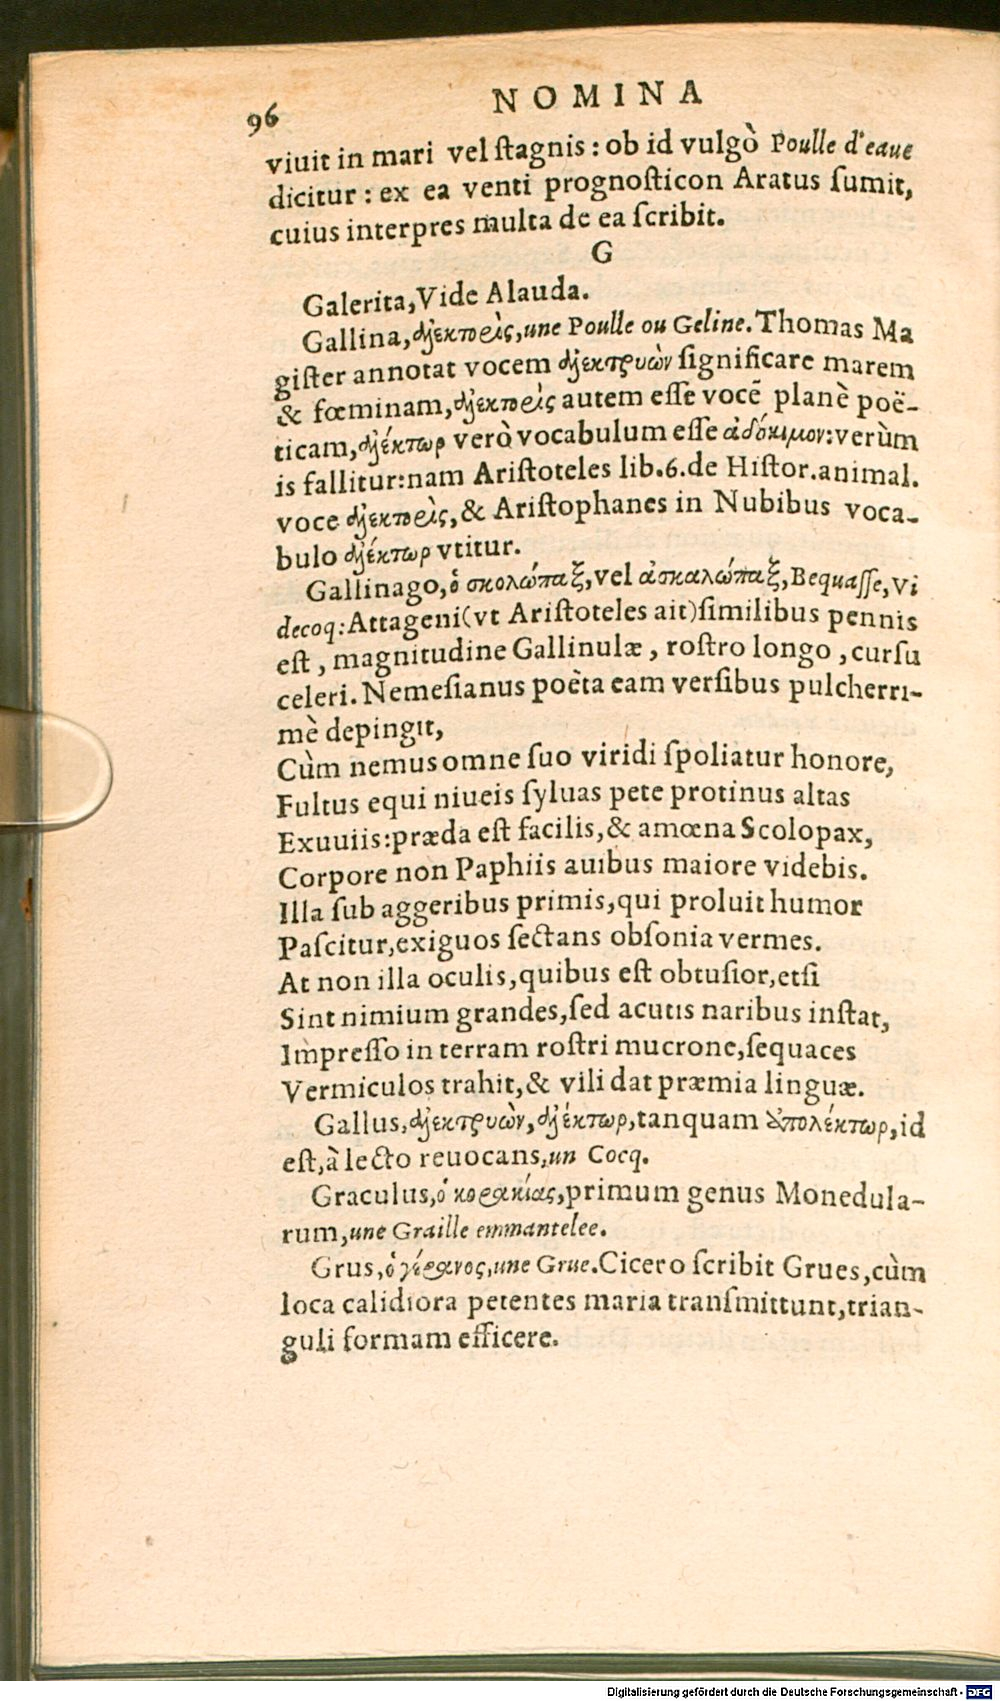 96 NOMINA
viuit in mari vel ſtagnis : ob id vulgò Poulle d'eaue
dicitur : ex ea venti prognoſticon Aratus ſumit,
cuius interpres multa de ea ſcribit.
G
Galerita, Vide Alauda.
Gallina, ἀλεκτορὶς, une Poulle ou Geline. Thomas Ma
giſter annotat vocem ἀλεκτρυὼν ſignificare marem
& fœminam, ἀλεκτορὶς autem eſſe vocē planè poë-
ticam, ἀλέκτωρ verò vocabulum eſſe ἀδόκιμον: verùm
is fallitur: nam Ariſtoteles lib. 6. de Hiſtor. animal.
voce ἀλεκτορὶς, & Ariſtophanes in Nubibus voca-
bulo ἀλέκτωρ vtitur.
Gallinago, ὁ σκολώπαξ, vel ἀσκαλώπαξ, Bequaſſe, Vi
decoq: Attageni (vt Ariſtoteles ait) ſimilibus pennis
eſt, magnitudine Gallinulæ, roſtro longo, curſu
celeri. Nemeſianus poëta eam verſibus pulcherri-
mè depingit,
Cùm nemus omne ſuo viridi ſpoliatur honore,
Fultus equi niueis ſyluas pete protinus altas
Exuuiis: præda eſt facilis, & amœna Scolopax,
Corpore non Paphiis auibus maiore videbis.
Illa ſub aggeribus primis, qui proluit humor
Paſcitur, exiguos ſectans obſonia vermes.
At non illa oculis, quibus eſt obtuſior, etſi
Sint nimium grandes, ſed acutis naribus inſtat,
Impreſſo in terram roſtri mucrone, ſequaces
Vermiculos trahit, & vili dat præmia linguæ.
Gallus, ἀλεκτρυὼν, ἀλέκτωρ, tanquam ἀπολέκτωρ, id
eſt, à lecto reuocans, un Cocq.
Graculus, ὁ κορακίας, primum genus Monedula-
rum, une Graille emmantelee.
Grus, ὁ γέρανος, une Grue. Cicero ſcribit Grues, cùm
loca calidiora petentes maria tranſmittunt, trian-
guli formam efficere.
Digitalisierung gefördert durch die Deutsche Forschungsgemeinschaft - DFG